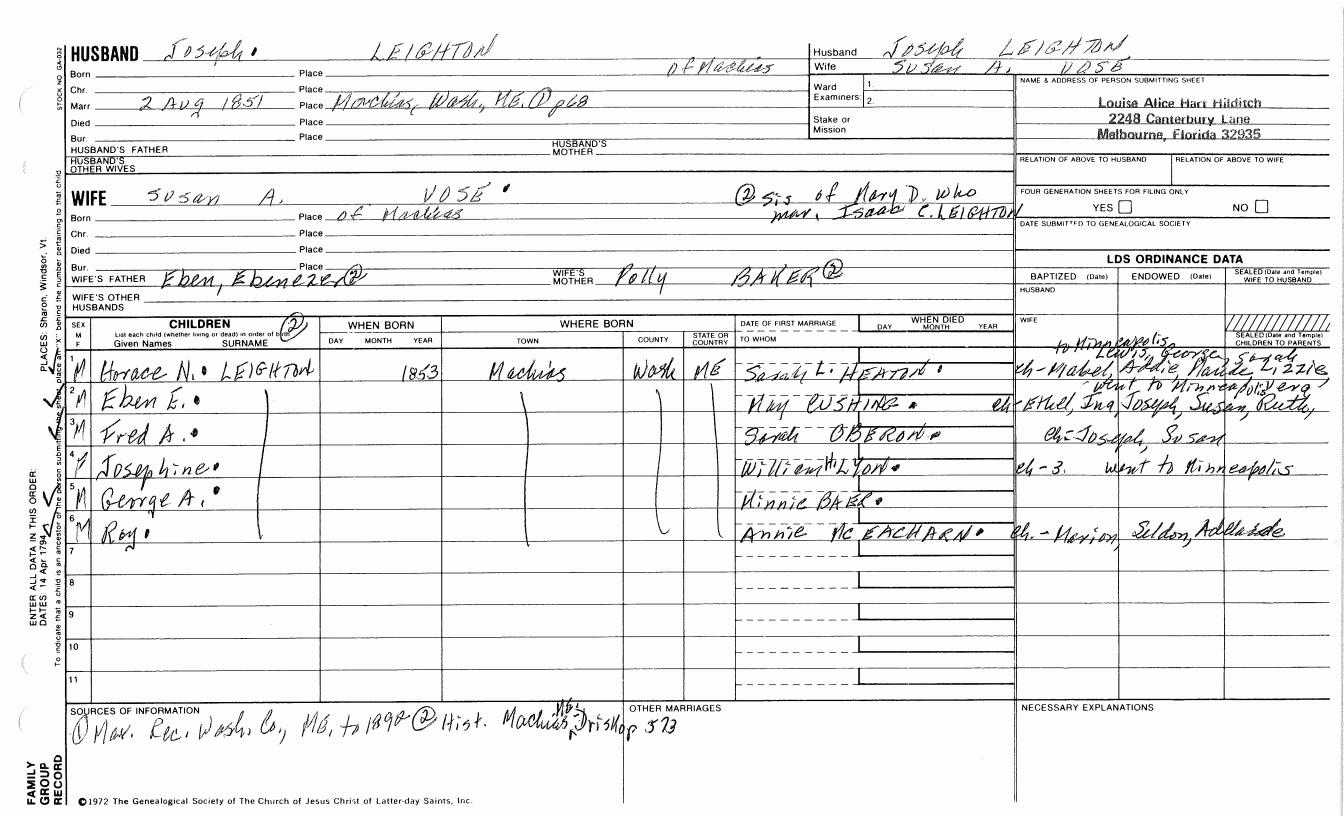 HUSBAND Joseph LEIGHTON
of Machias
Born Place
Chr. Place
Marr 2 Aug 1851 Place Machias, Wash, ME. ① p68
Died Place
Bur. Place
HUSBAND'S FATHER HUSBAND'S MOTHER
HUSBAND'S OTHER WIVES
Husband Joseph LEIGHTON
Wife Susan A. VOSE
Ward Examiners 1.
2.
Stake or Mission
NAME & ADDRESS OF PERSON SUBMITTING SHEET
Louise Alice Hart Hilditch
2248 Canterbury Lane
Melbourne, Florida 32935
RELATION OF ABOVE TO HUSBAND RELATION OF ABOVE TO WIFE
FOUR GENERATION SHEETS FOR FILING ONLY
YES NO
DATE SUBMITTED TO GENEALOGICAL SOCIETY
WIFE Susan A. VOSE
② sis of Mary D. who
mar. Isaac C. LEIGHTON
Born Place of Machias
Chr. Place
Died Place
Bur. Place
WIFE'S FATHER Eben, Ebenezer ② WIFE'S MOTHER Polly BAKER ②
WIFE'S OTHER HUSBANDS
LDS ORDINANCE DATA
BAPTIZED (Date) ENDOWED (Date) SEALED (Date and Temple) WIFE TO HUSBAND
HUSBAND
WIFE
SEALED (Date and Temple) CHILDREN TO PARENTS
SEX M F
CHILDREN ②
List each child (whether living or dead) in order of birth
Given Names SURNAME
WHEN BORN DAY MONTH YEAR
WHERE BORN TOWN COUNTY STATE OR COUNTRY
DATE OF FIRST MARRIAGE TO WHOM
WHEN DIED DAY MONTH YEAR
to Minneapolis
Lewis, George, Sarah
1 M Horace N. LEIGHTON 1853 Machias Wash ME Sarah L. HEATON ch-Mabel, Addie, Maude, Lizzie
went to Minneapolis Vera
2 M Eben E. May CUSHING ch-Ethel, Ina, Joseph, Susan, Ruth,
3 M Fred A. Sarah OBERON ch-Joseph, Susan
4 F Josephine William H. LYON ch-3. went to Minneapolis
5 M George A. Minnie BAER
6 M Roy Annie McEACHARN ch.-Marion, Seldon, Adelaide
7
8
9
10
11
SOURCES OF INFORMATION
① Mar. Rec. Wash. Co., ME, to 1892 ② Hist. Machias, ME, Drisko p 573
OTHER MARRIAGES
NECESSARY EXPLANATIONS
©1972 The Genealogical Society of The Church of Jesus Christ of Latter-day Saints, Inc.
FAMILY GROUP RECORD
ENTER ALL DATA IN THIS ORDER:
DATES: 14 Apr 1794
PLACES: Sharon, Windsor, Vt.
To indicate that a child is an ancestor of the person submitting the sheet, place an "X" behind the number pertaining to that child
STOCK NO. GA-032